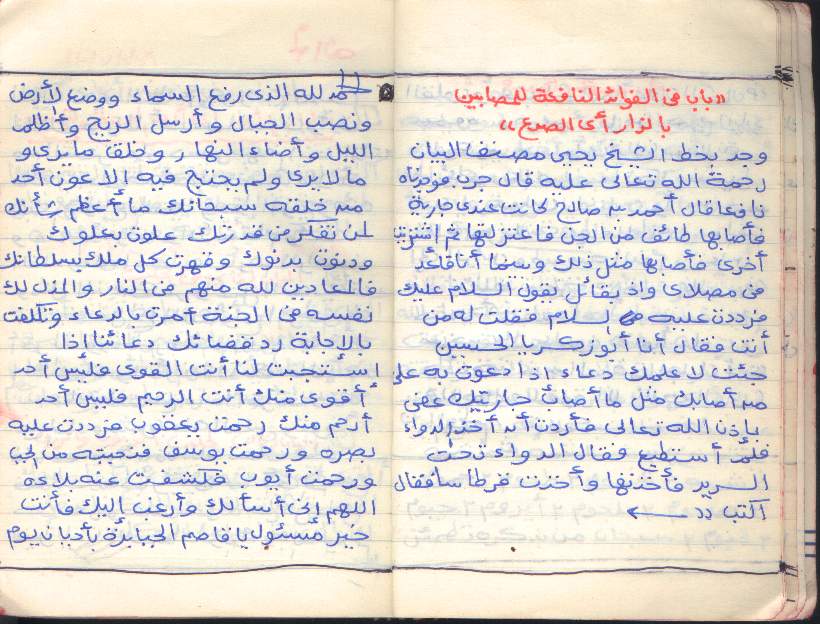 «باب فى الفوائد النافعة للمصابين
بالزار أى الصرع»
وجد بخط الشيخ يحيى مصنف البيان
رحمة الله تعالى عليه قال جرب فوجدناه
نافعا قال أحمد بن صالح كانت عندى جارية
فأصابها طائف من الجن فاعتزلتها ثم اشتريت
أخرى فأصابها مثل ذلك وبينما أنا قاعد
فى مصلاى واذ بقائل يقول السلام عليك
فرددة عليه السلام فقلت له من
أنت فقال أنا أبو زكريا الحسين
جئت لأعلمك دعاء اذا دعوت به على
من أصابك مثل ما أصاب جاريتك عفى
باذن الله تعالى فأردت أن أخذ الدواء
فلم أستطيع فقال الدواء تحت
السرير فأخذتها وأخذت قرطاسا فقال
اكتب
الحمد لله الذى رفع السماء ووضع الأرض
ونصب الجبال وأرسل الريح وأظلم
الليل وأضاء النهار وخلق ما يرى و
ما لا يرى ولم يحتج فيه إلا عون أحد
من خلقه سبحانك ما أعظم شأنك
لمن تفكر من قدرتك علوت بعلوك
ودنوت بدنوك وقهرت كل ملك بسلطانك
فالمعادين لله منهم فى النار والمذل لك
نفسه فى الجنة أمرت بالدعاء وتكلفت
بالإجابة رد قضائك دعائنا إذا
استجبت لنا أنت القوى فليس أحد
أقوى منك أنت الرحيم فليس أحد
أرحم منك رحمت يعقوب فرددت عليه
بصره ورحمت يوسف فنجيته من الجب
ورحمت أيوب فكشفت عنه بلاءه
اللهم إنى أسألك وأرغب إليك فأنت
خير مسئول يا قاصم الجبابرة يا ديان يوم